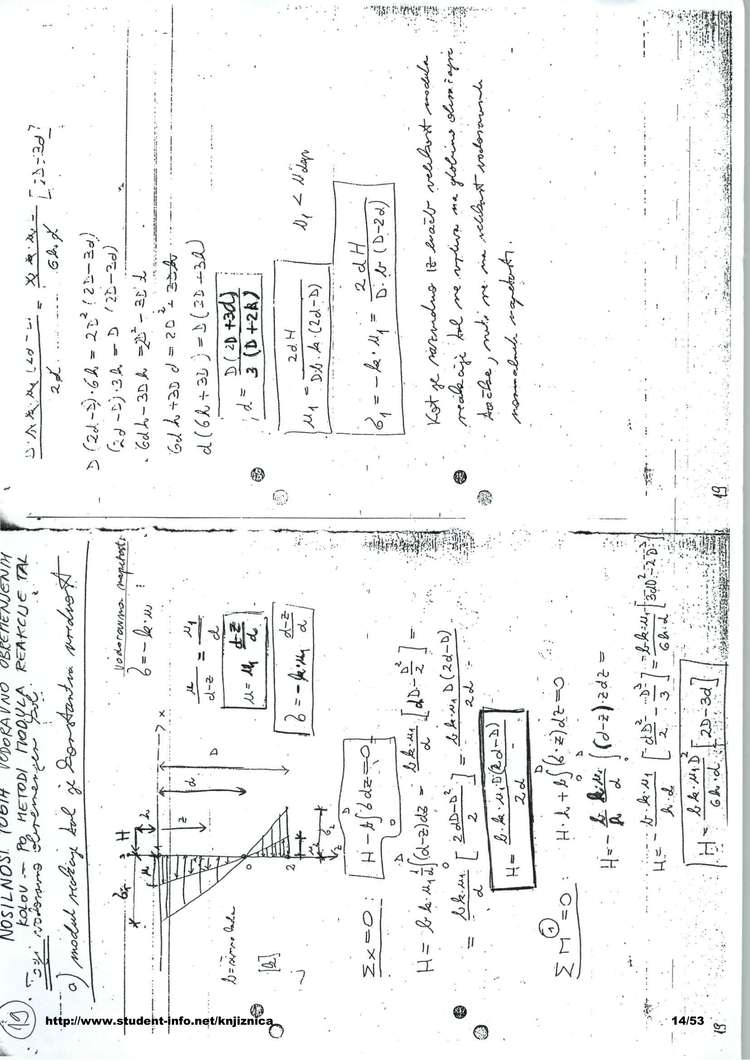 19
NOSILNOST TOGIH VODORAVNO OBREMENJENIH
KOLOV – PO METODI MODULA REAKCIJE TAL
a) modul reakcije tal je konstantna vrednost
vodoravna napetost:
σ = -k·u
H
h
x
z
d
D
u₁
0
1
2
σ₂
[k]
u/(d-z) = u₁/d
u = u₁ (d-z)/d
σ = -k·u₁ (d-z)/d
Σx=0: H - b∫σdz=0
H = b·k·u₁ 1/d ∫(d-z)dz = b·k·u₁/d [dD - D²/2] =
= b·k·u₁/d [(2dD-D²)/2] = b·k·u₁ D(2d-D)/2d
H = b·k·u₁·D(2d-D)/2d
ΣM①=0: H·h + b∫(σ·z)dz=0
H = -b/h k·u₁/d ∫(d-z)·z dz =
H = -b·k·u₁/h·d [dD²/2 - D³/3] = b·k·u₁/6h·d [3dD²-2D³]
H = b·k·u₁D²/6h·d [2D-3d]
19
D(2d-D)·6h = 2D²(2D-3d)
(2d-D)·3h = D(2D-3d)
6dh-3Dh = 2D²-3Dd
6dh+3Dd = 2D²+3Dh
d(6h+3D) = D(2D+3h)
d = D(2D+3h)/3(D+2h)
u₁ = 2dH/Db·k·(2d-D)
u₁ < u dop
σ₁ = -k·u₁ = 2dH/D·b·(D-2d)
Kot je razvidno iz enačb velikost modula
reakcije tal ne vpliva na globino obračajne
točke, niti ne na velikost vodoravnih
normalnih napetosti.
19
http://www.student-info.net/knjiznica
14/53